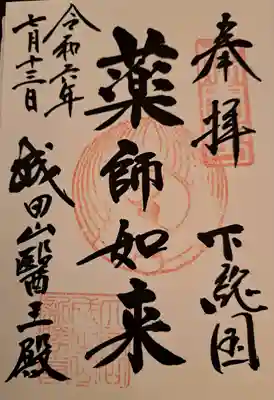 奉拝
下総国
薬師如来
令和六年
七月十三日
成田山醫王殿